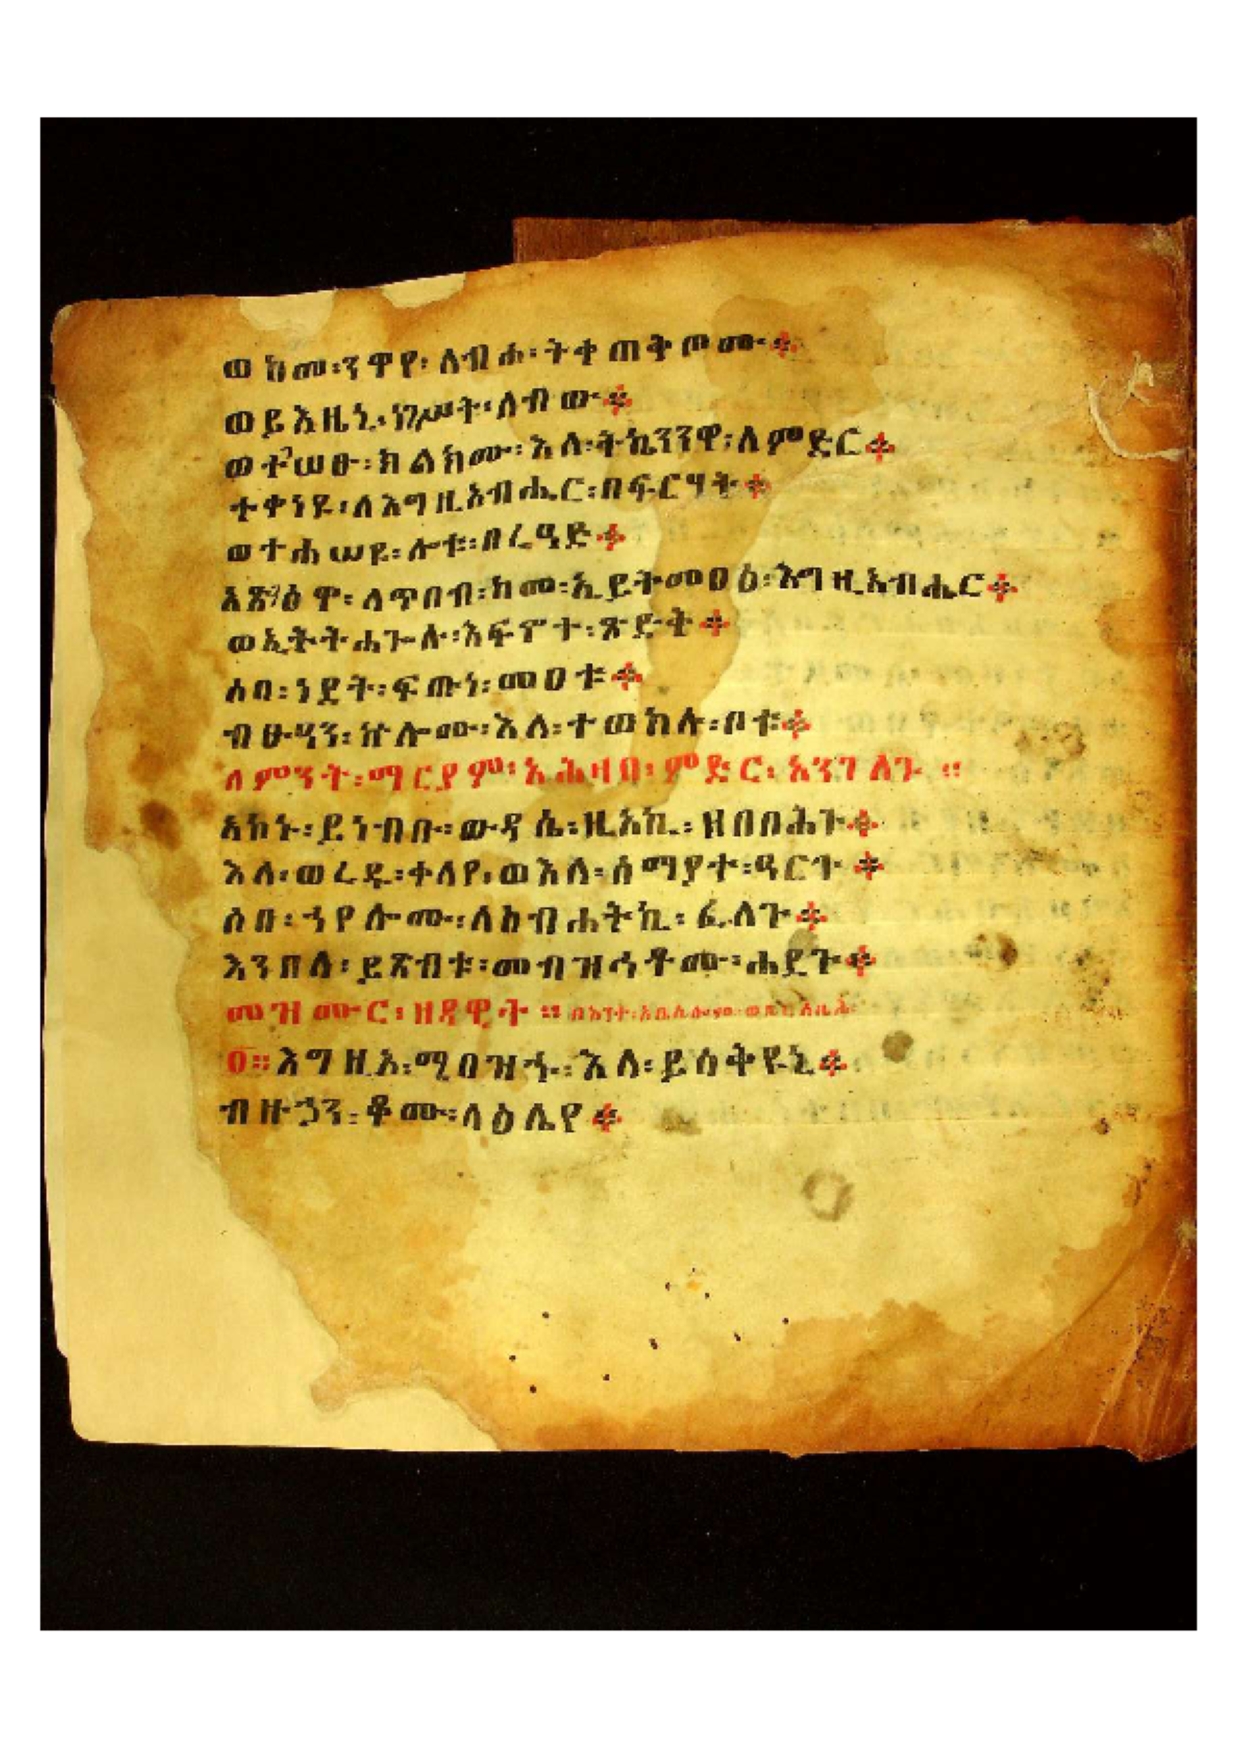 ወከመ፡ንዋየ፡ ለብሐ፡ትቀጠቅጦሙ፨
ወይእዜኒ፡ነገሥት፡ለብው፨
ወተገሠፁ፡ክልክሙ፡እለ፡ትኬንንዋ፡ለምድር፨
ተቀነዩ፡ለእግዚአብሔር፡በፍርሃት፨
ወተሐሠዩ፡ሎቱ፡በረዓድ፨
አጽንዕዋ፡ለጥበብ፡ከመ፡ኢይትመዐዕ፡እግዚአብሔር፨
ወኢትትሐጐሉ፡እፍኖተ፡ጽድቅ፨
ሰበ፡ነደት፡ፍጡነ፡መዐቱ፨
ብፁዓን፡ኵሎሙ፡እለ፡ተወከሉ፡ቦቱ፨
ለምንት፡ማርያም፡አሕዛበ፡ምድር፡አንገለጉ ።
አኮኑ፡ይነብቡ፡ውዳሴ፡ዚአኪ፡ዘበበሕጉ፨
እለ፡ወረዱ፡ቀላየ፡ወእለ፡ሰማያተ፡ዓርጉ ፨
ሰበ፡ኀየሎሙ፡ለስብሐትኪ፡ ፈለጉ፨
እንበለ፡ይጽብቱ፡መብዝኅቶሙ፡ሐደጉ፨
መዝሙር፡ዘዳዊት ።
፫።እግዚኦ፡ሚበዝኁ፡እለ፡ይሳቅዩኒ፨
ብዙኃን፡ቆሙ፡ላዕሌየ፨